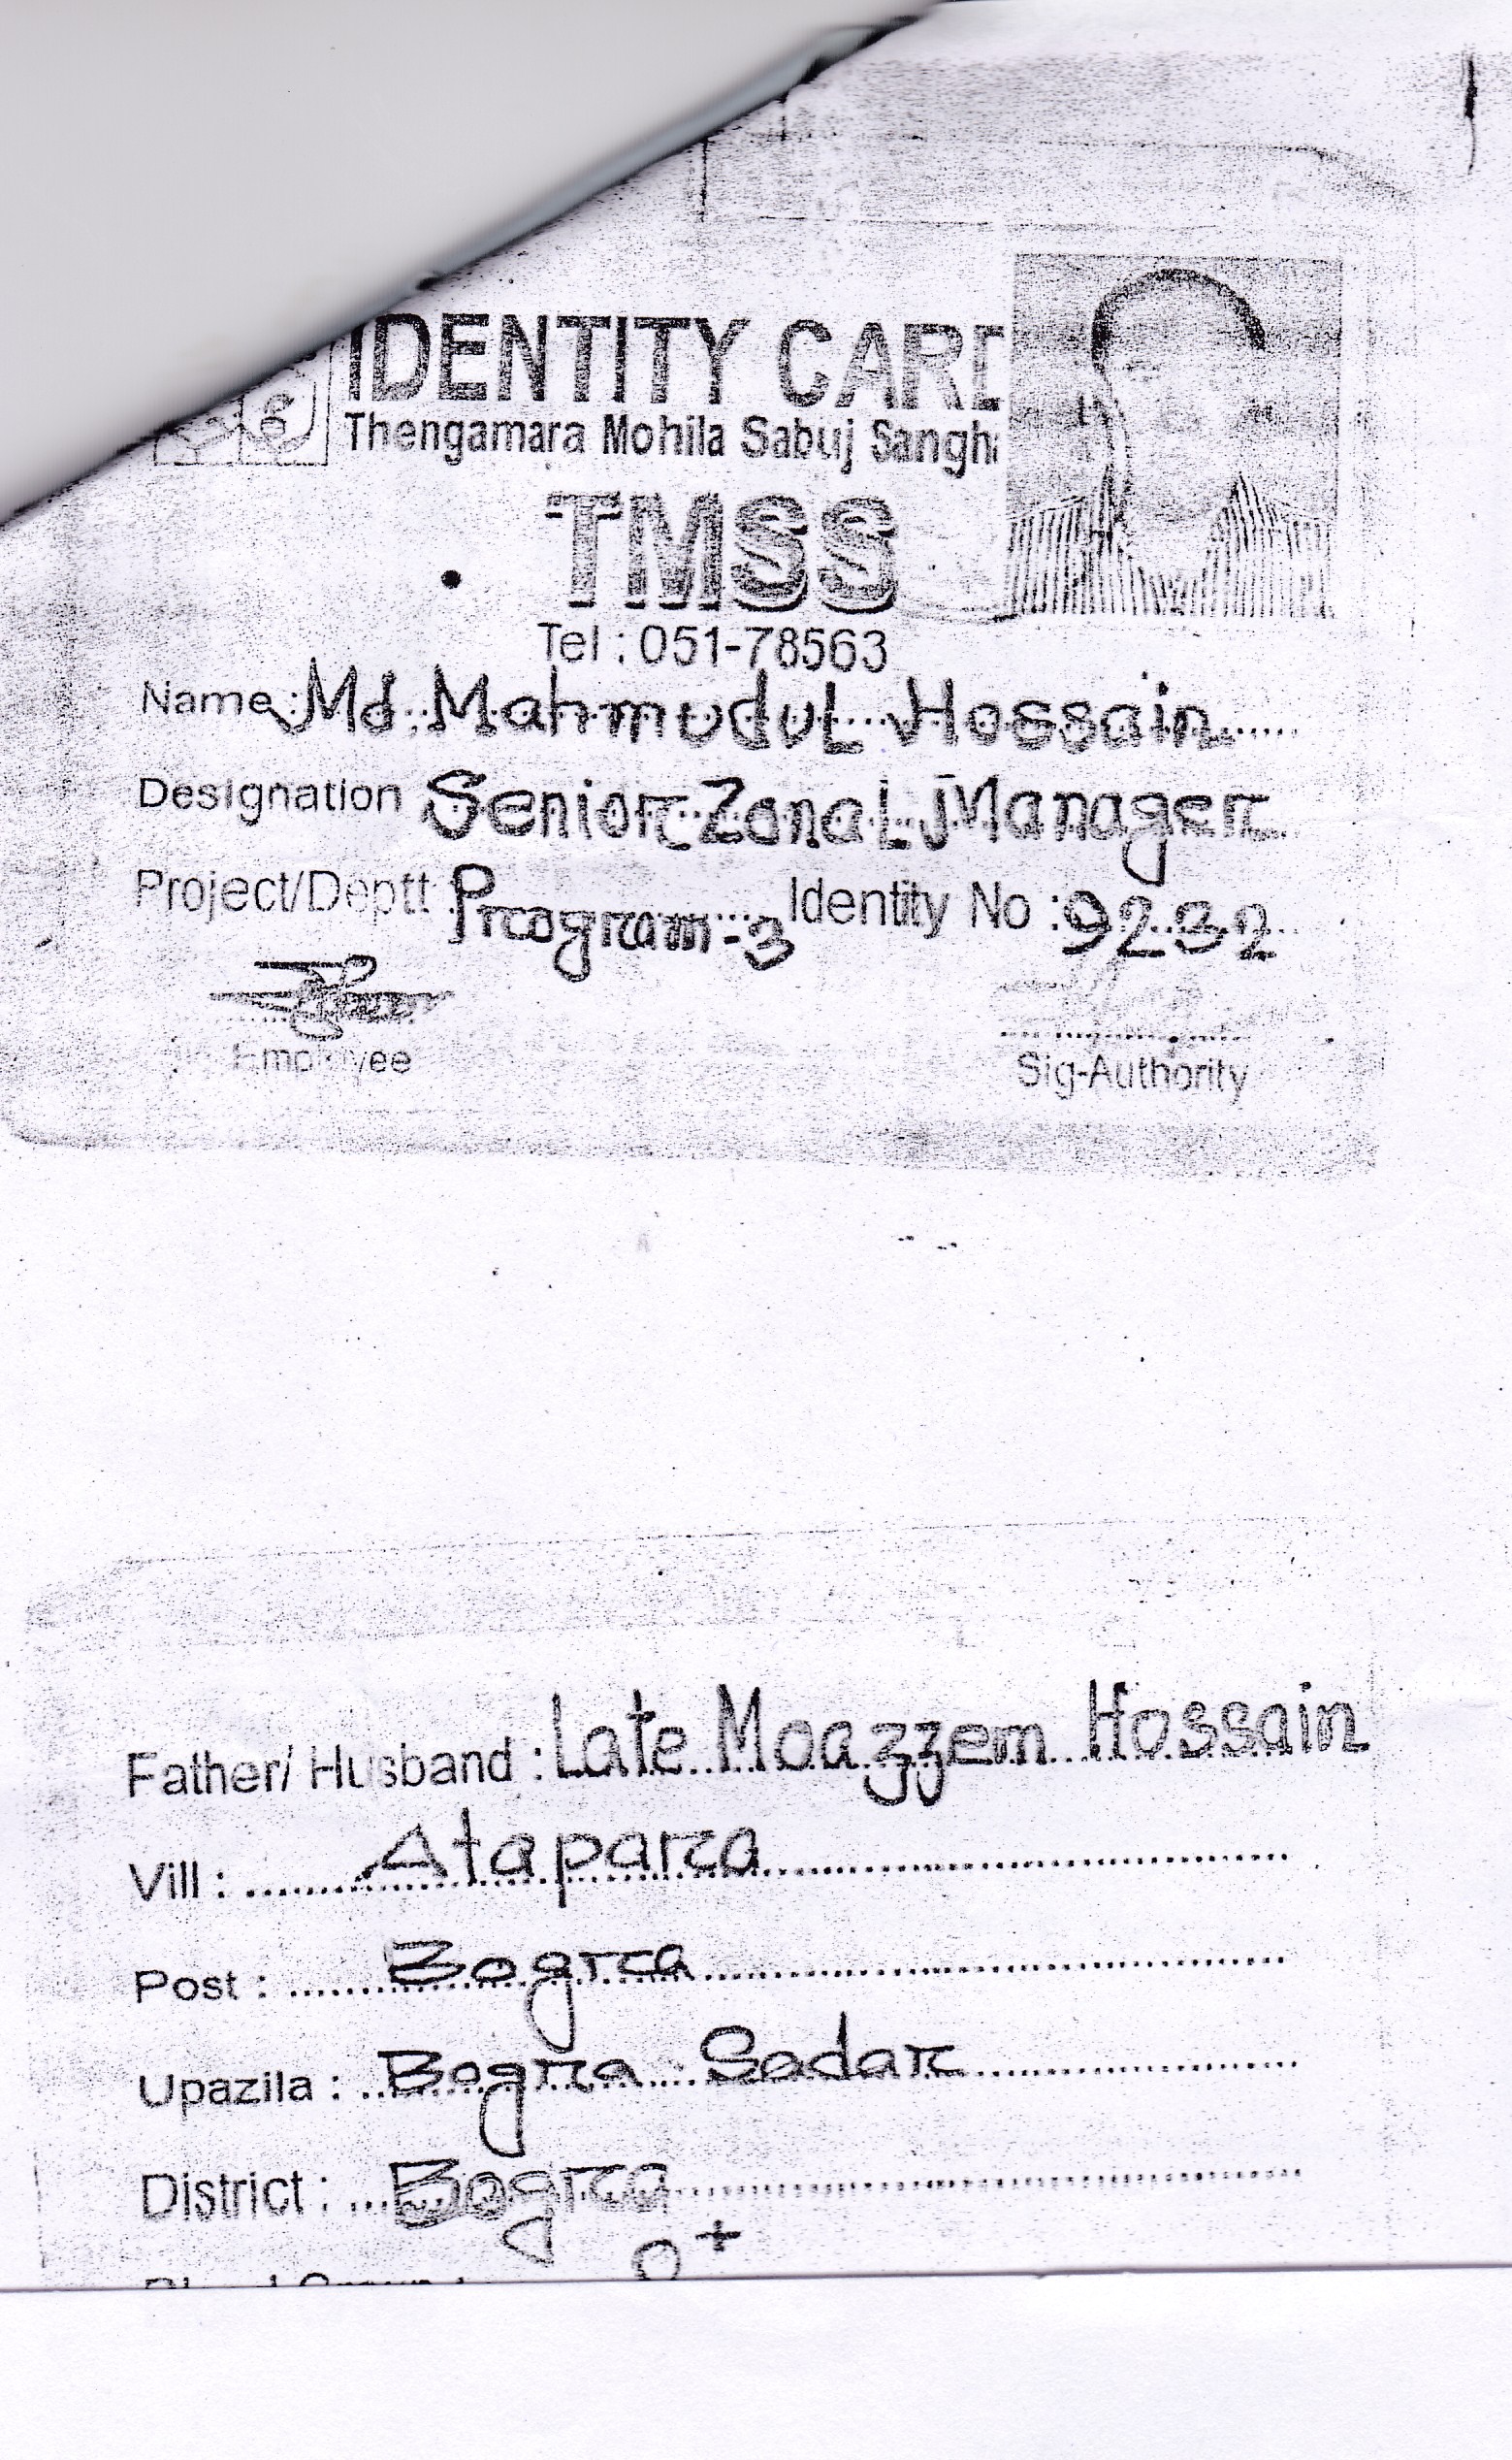 IDENTITY CARD
Thengamara Mohila Sabuj Sangh
TMSS
Tel : 051-78563
Name : Md. Mahmudul Hossain
Designation Senior Zonal Manager
Project/Deptt : Program-3 Identity No : 9232
Employee
Sig-Authority
Father/ Husband : Late Moazzem Hossain
Vill : Atapara
Post : Bogra
Upazila : Bogra Sadar
District : Bogra
Blood Group : O+